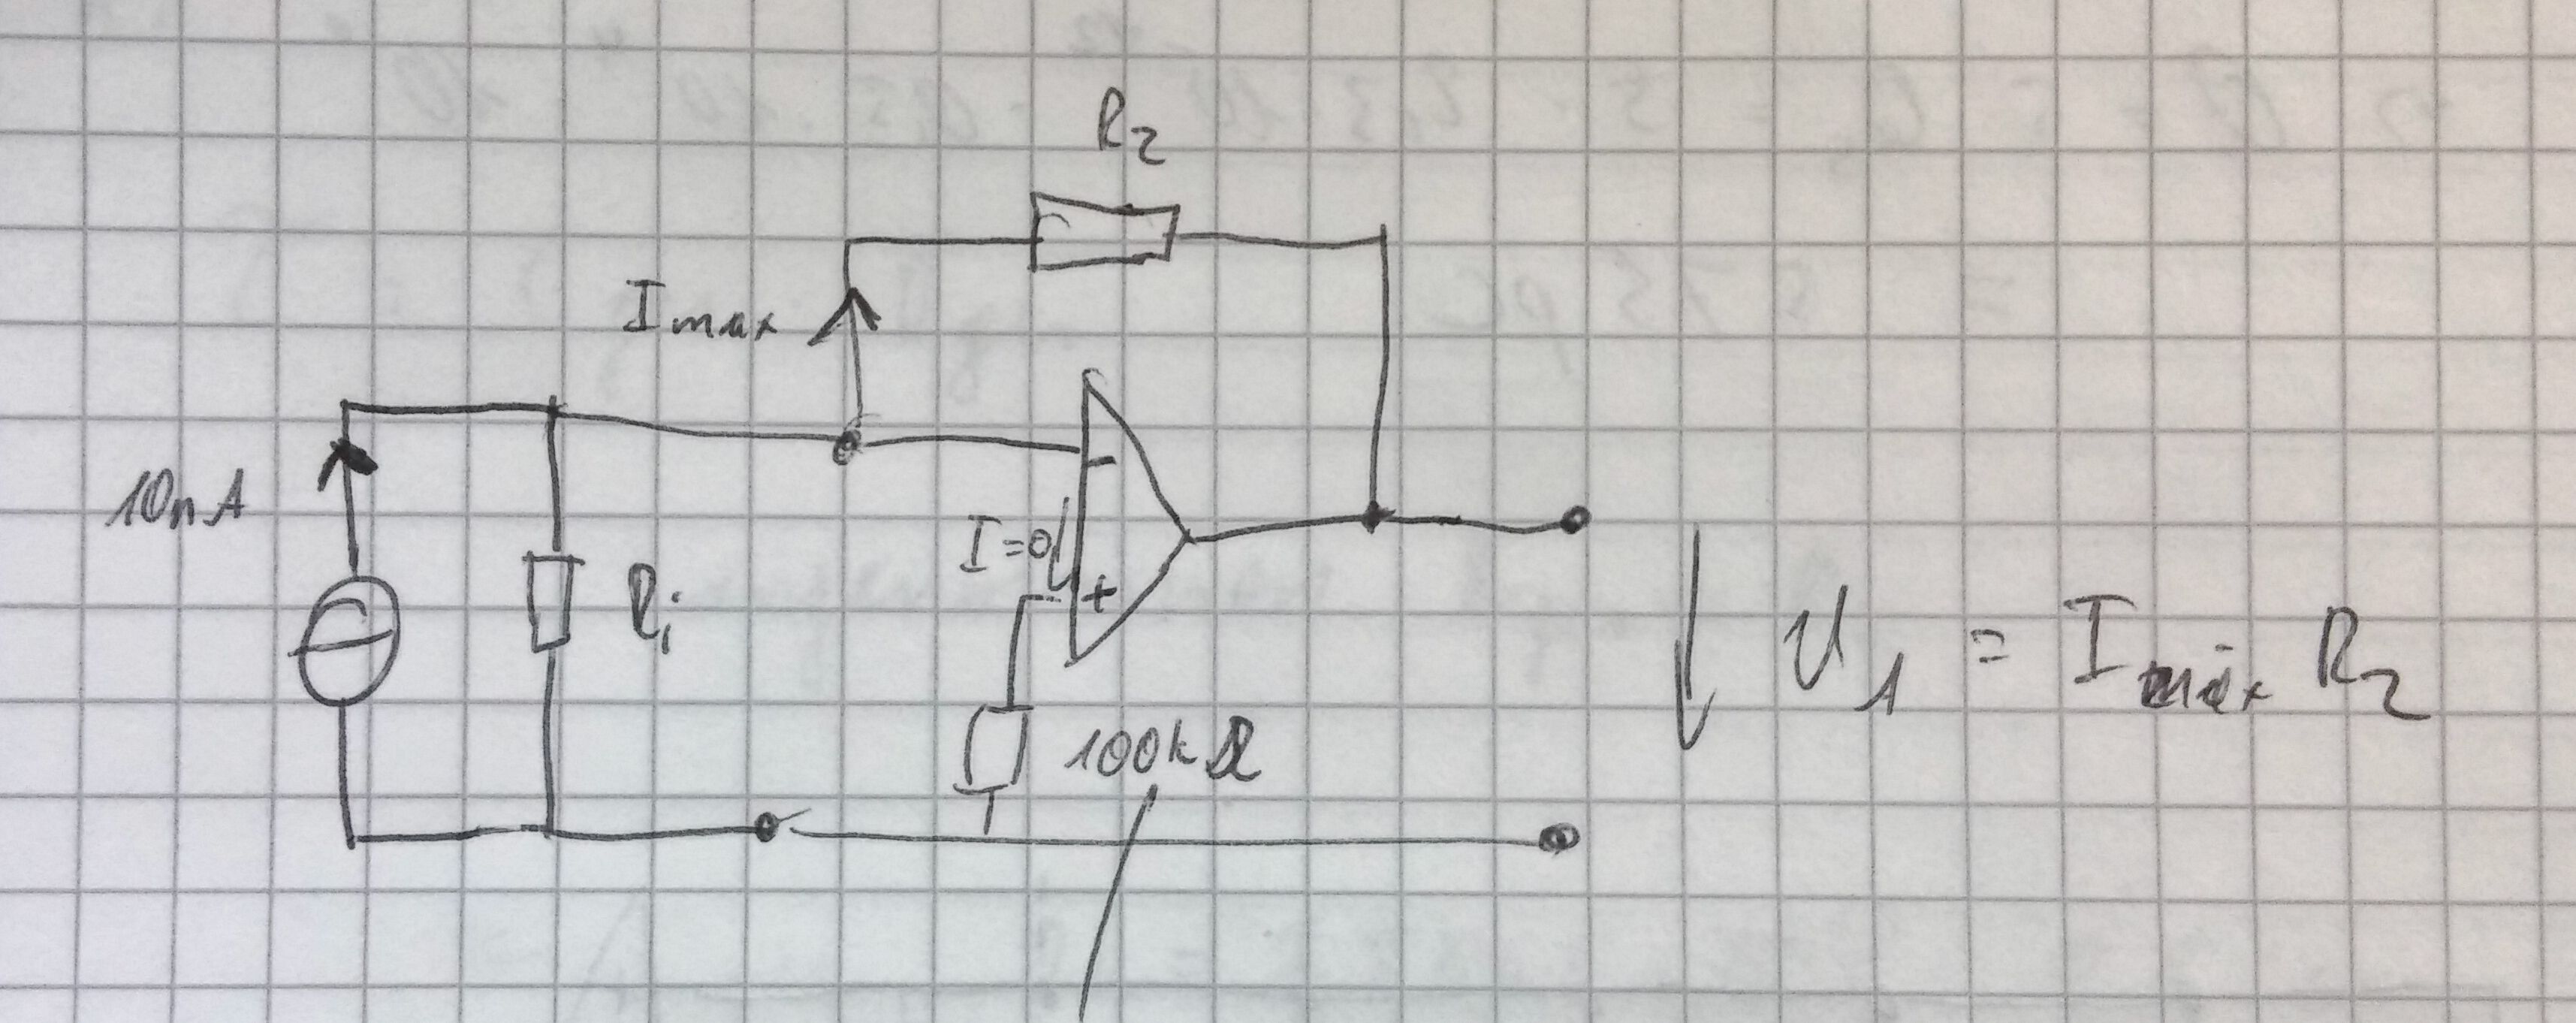 R2
Imax
10nA
Ri
I=0
-
+
100kΩ
U1 = Imax R2